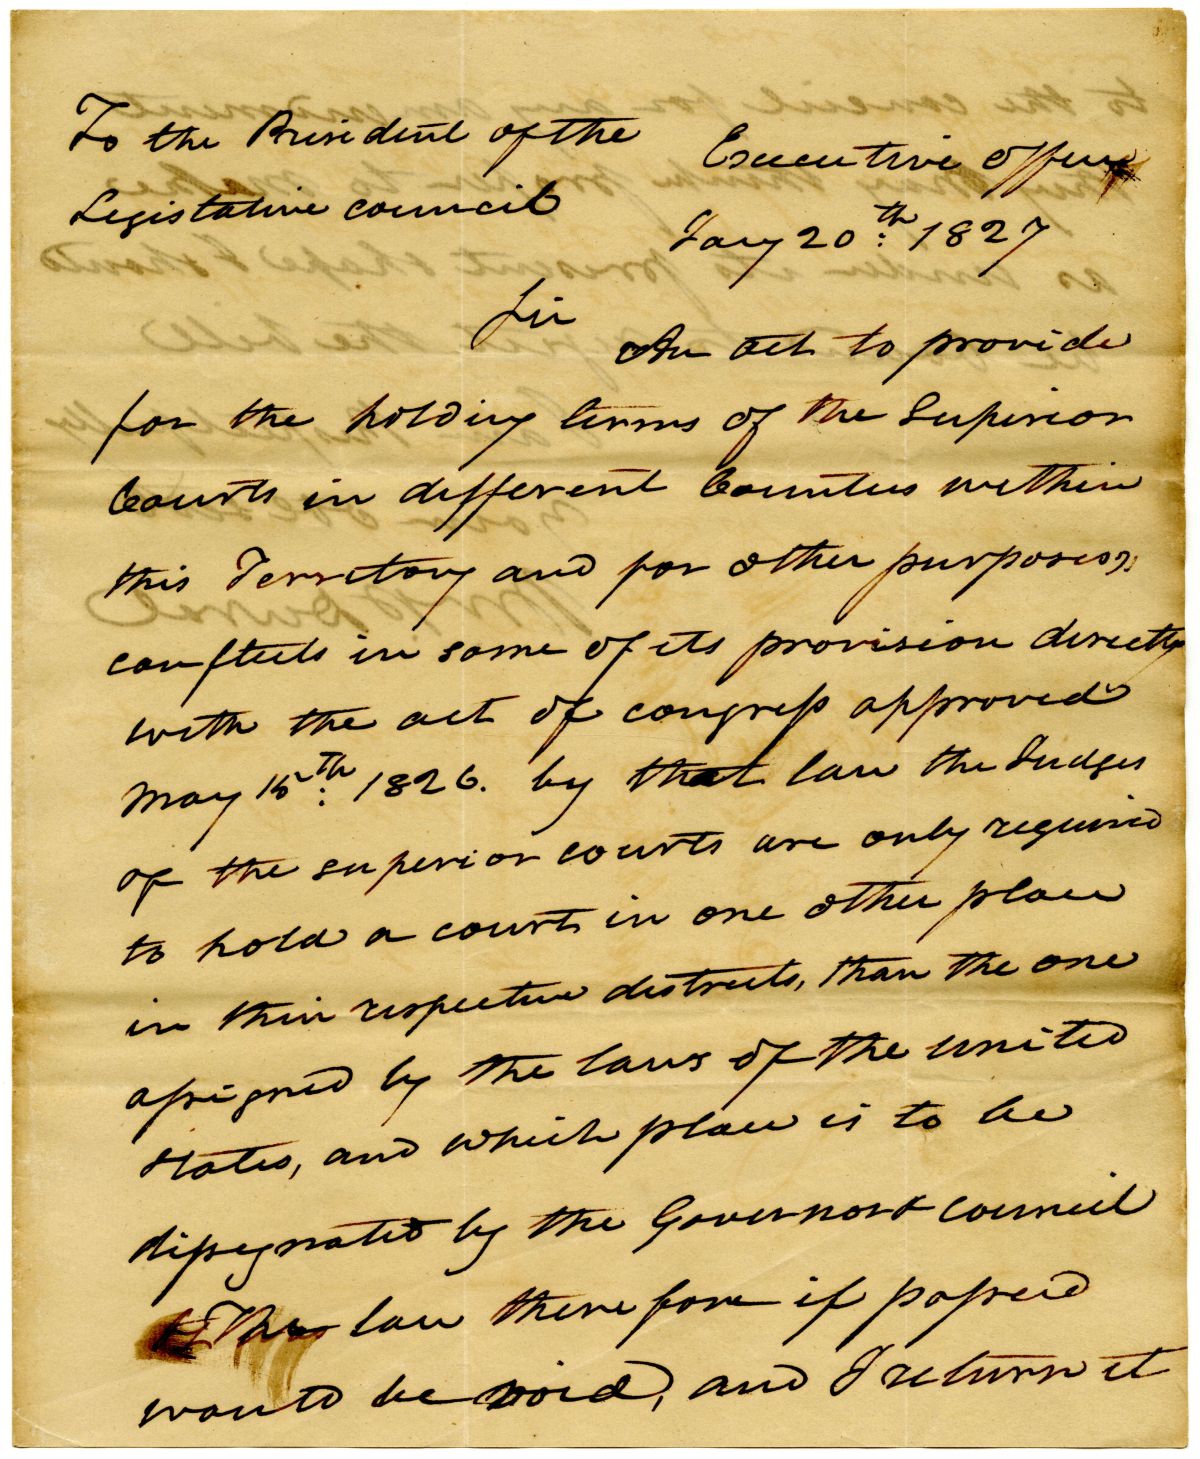 To the President of the
Legislative council
Executive office
Jany 20th: 1827
Sir
An act to provide
for the holding terms of the Superior
Courts in different Counties within
this Territory and for other purposes,
conflicts in some of its provision directly
with the act of congress approved
May 15th: 1826. by that law the Judges
of the superior courts are only required
to hold a court in one other place
in their respective districts, than the one
assigned by the laws of the united
states, and which place is to be
dissegnated by the Governor & council
This law therefore if passed
would be void, and I return it